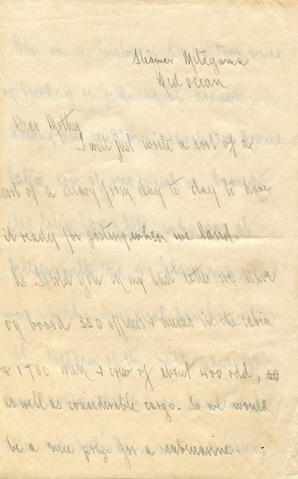 Steamer Metagama
Mid ocean
Dear Mother
I will just write a sort of a
sort of a diary from day to day to have
it ready for posting when we land.
As I told you in my last letter we have
on board 320 officers & nurses in the cabin
& 1700 men & crew of about 400 odd,
as well as considerable cargo. So we would
be a nice prize for a submarine.